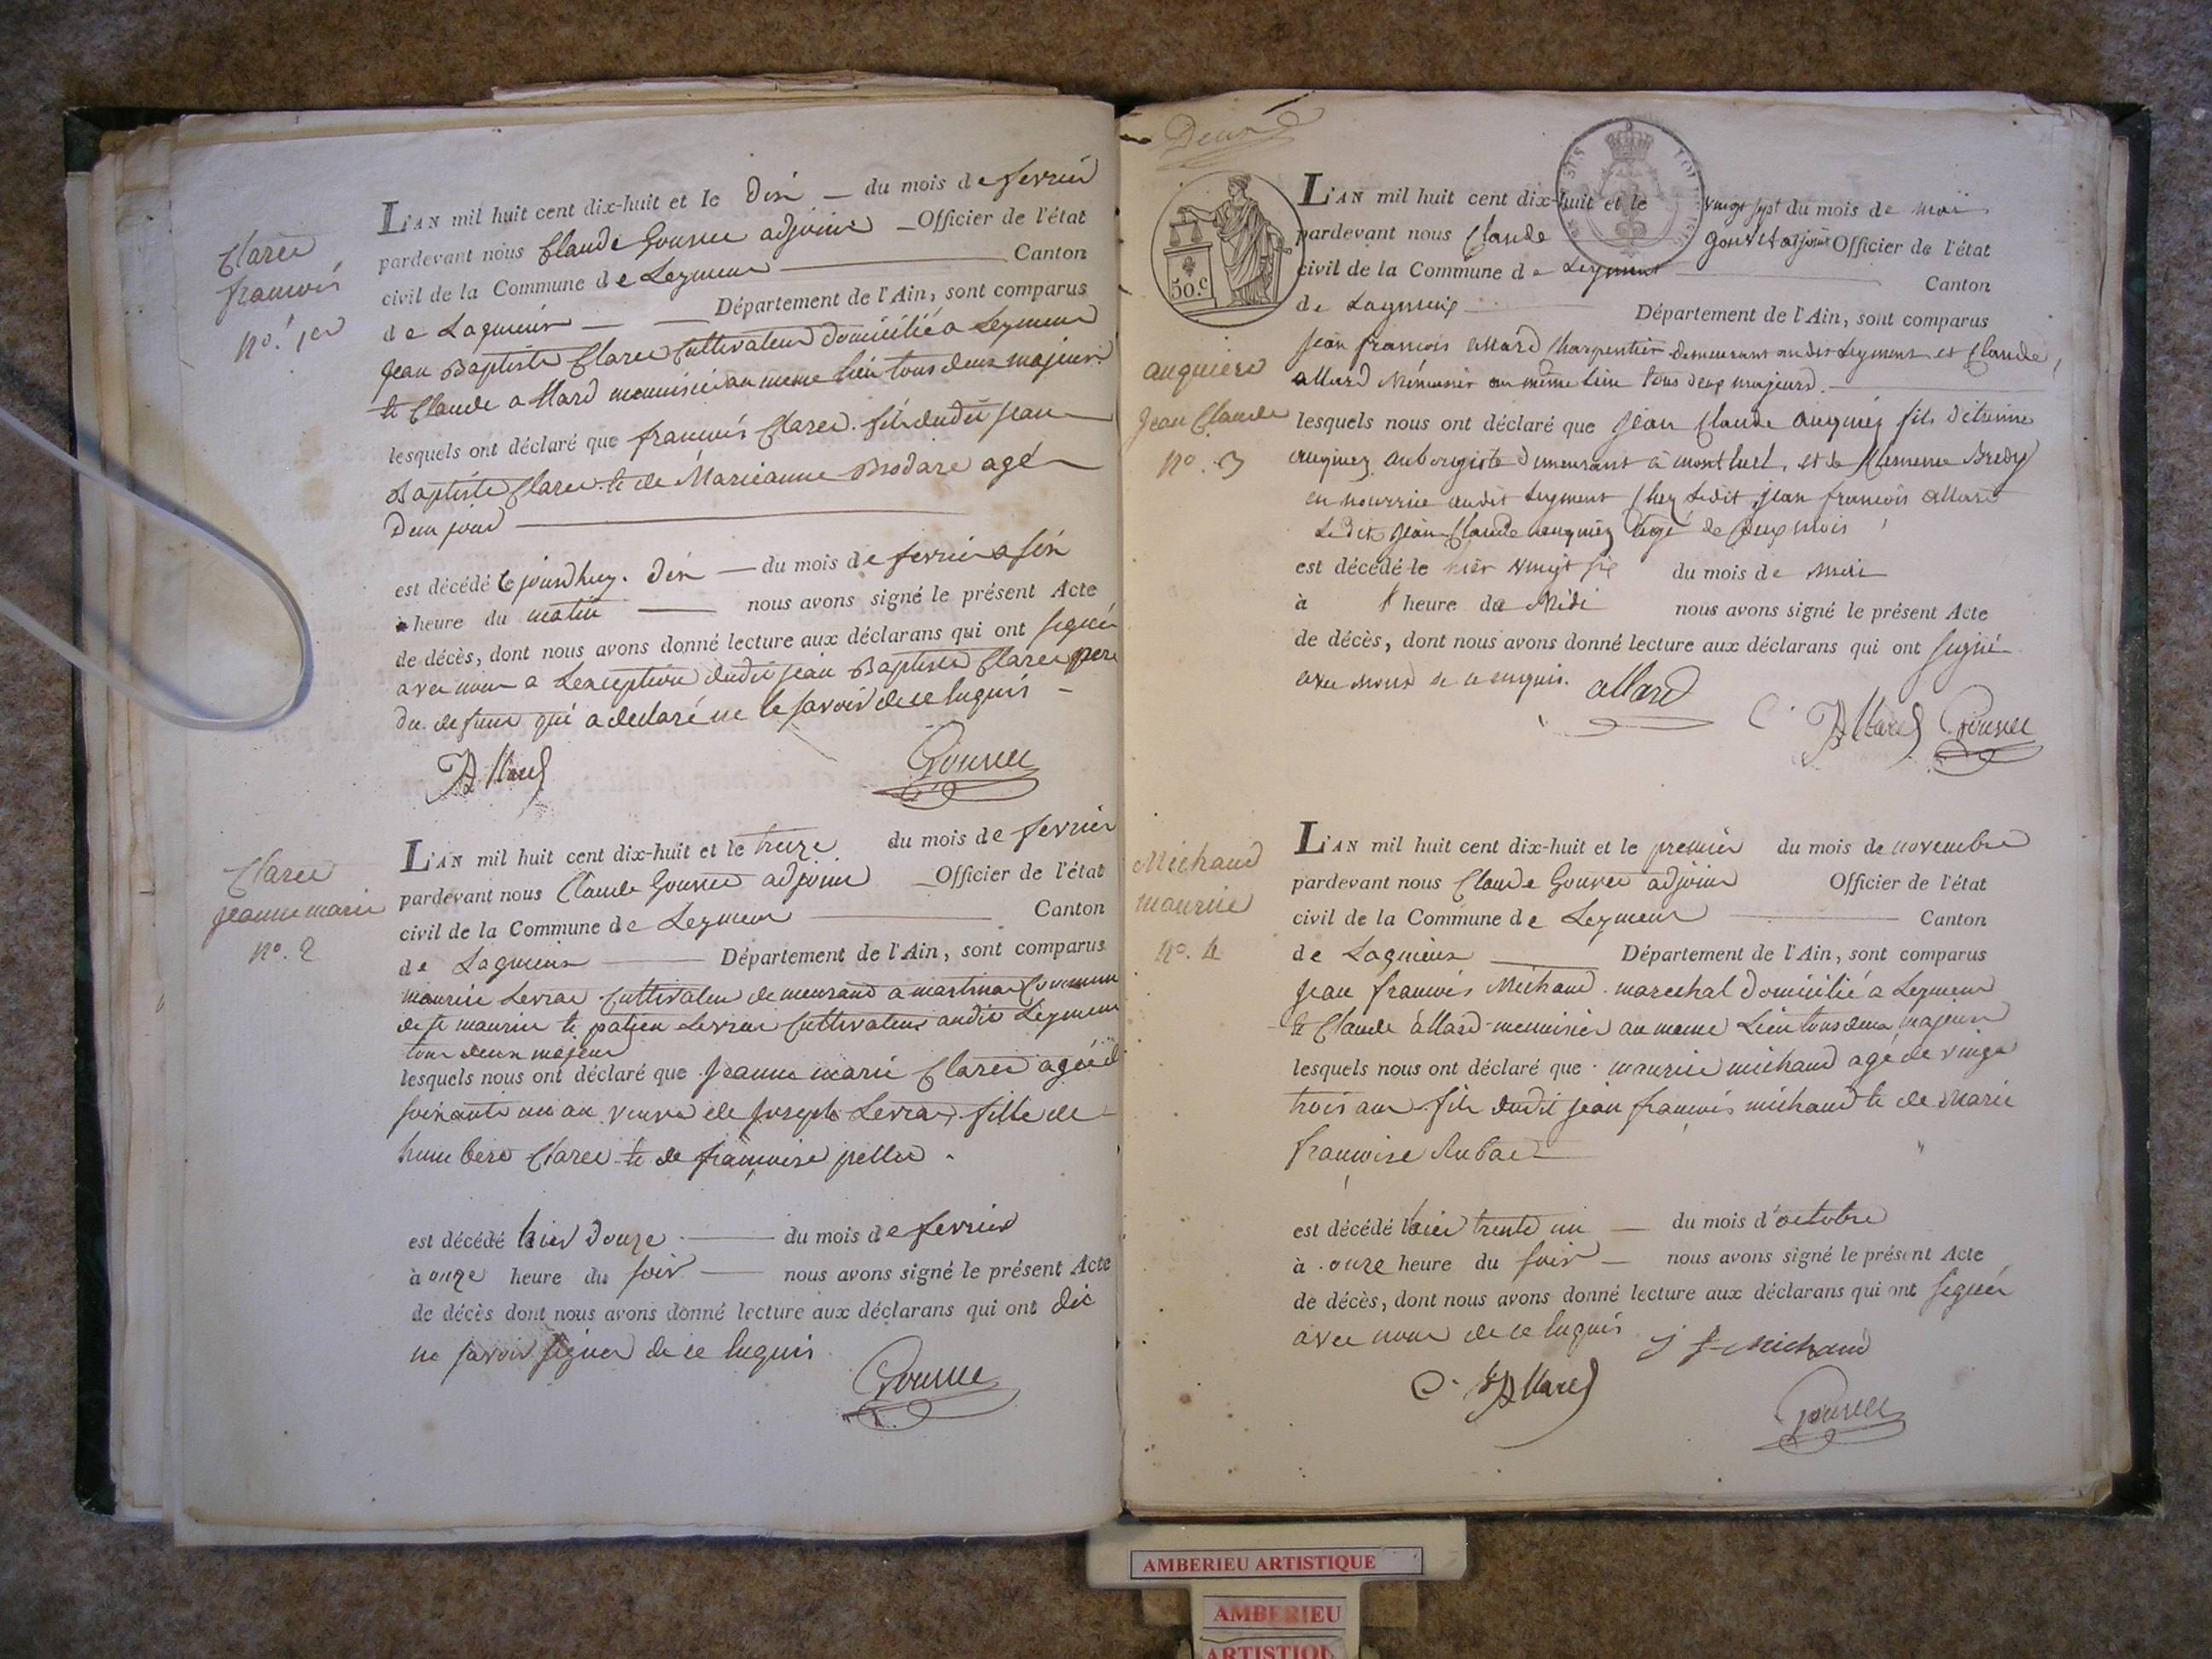 Claret
françois
n°. 1er
L'AN mil huit cent dix-huit et le dix du mois de fevrier
pardevant nous Claude Gouvet adjoint Officier de l'état
civil de la Commune de Leyment Canton
de Lagnieux Département de l'Ain, sont comparus
Jean Baptiste Claret Cultivateur domicilié a Leyment
et Claude allard menuisier au meme lieu tous deux majeurs
lesquels ont déclaré que françois Claret fils dudit jean
Baptiste Claret et de Marieanne Brodare agé
Dun jour
est décédé le jourdhuy dix du mois de fevrier a six
heure du matin nous avons signé le présent Acte
de décès, dont nous avons donné lecture aux déclarans qui ont signé
avec nous a Lexception dudit jean Baptiste Claret pere
du defunt qui a declaré ne le savoir de ce Enquis
Allard Gouvet
Claret
jeanne marie
n°. 2
L'AN mil huit cent dix-huit et le treize du mois de fevrier
pardevant nous Claude Gouvet adjoint Officier de l'état
civil de la Commune de Leyment Canton
de Lagnieux Département de l'Ain, sont comparus
maurice Levrat Cultivateur demeurant a martinaz Commune
de st maurice et Levrat Cultivateur audit Leyment
tous deux majeur
lesquels nous ont déclaré que jeanne marie Claret agée d
soixante un an veuve de Joseph Levrat fille de
humbert Claret et de françoise pellet
est décédé hier douze du mois de fevrier
à onze heure du soir nous avons signé le présent Acte
de décès dont nous avons donné lecture aux déclarans qui ont dit
ne savoir signer de ce Enquis
Gouvet
Deux
50.c
auguiere
Jean Claude
n°. 3
L'AN mil huit cent dix-huit et le vingt sept du mois de mai
pardevant nous Claude Gouvet adjoint Officier de l'état
civil de la Commune de Leyment Canton
de Lagnieux Département de l'Ain, sont comparus
jean francois allard Charpentier demeurant audit Leyment et Claude
allard Menuisier au même lieu tous deux majeurs
lesquels nous ont déclaré que jean Claude fils d'étienne
aubergiste demeurant à montluel, et de
en nourrice audit Leyment Chez Ledit jean francois allard
Ledit jean Claude agé de deux mois
est décédé le hier vingt six du mois de mai
à heure de Midi nous avons signé le présent Acte
de décès, dont nous avons donné lecture aux déclarans qui ont signé
avec nous de ce enquis. allard
C. Allard Gouvet
Michaud
maurice
n°. 4
L'AN mil huit cent dix-huit et le premier du mois de novembre
pardevant nous Claude Gouvet adjoint Officier de l'état
civil de la Commune de Leyment Canton
de Lagnieux Département de l'Ain, sont comparus
jean françois Michaud marechal domicilié a Leyment
et Claude allard menuisier au meme Lieu tous deux majeurs
lesquels nous ont déclaré que maurice michaud agé de vingt
trois ans fils dudit jean françois michaud et de Marie
françoise Rubat
est décédé hier trente un du mois d'octobre
à onze heure du soir nous avons signé le présent Acte
de décès, dont nous avons donné lecture aux déclarans qui ont signé
avec nous de ce Enquis J f Michaud
C. Allard
Gouvet
AMBERIEU ARTISTIQUE
AMBERIEU
ARTISTIQU